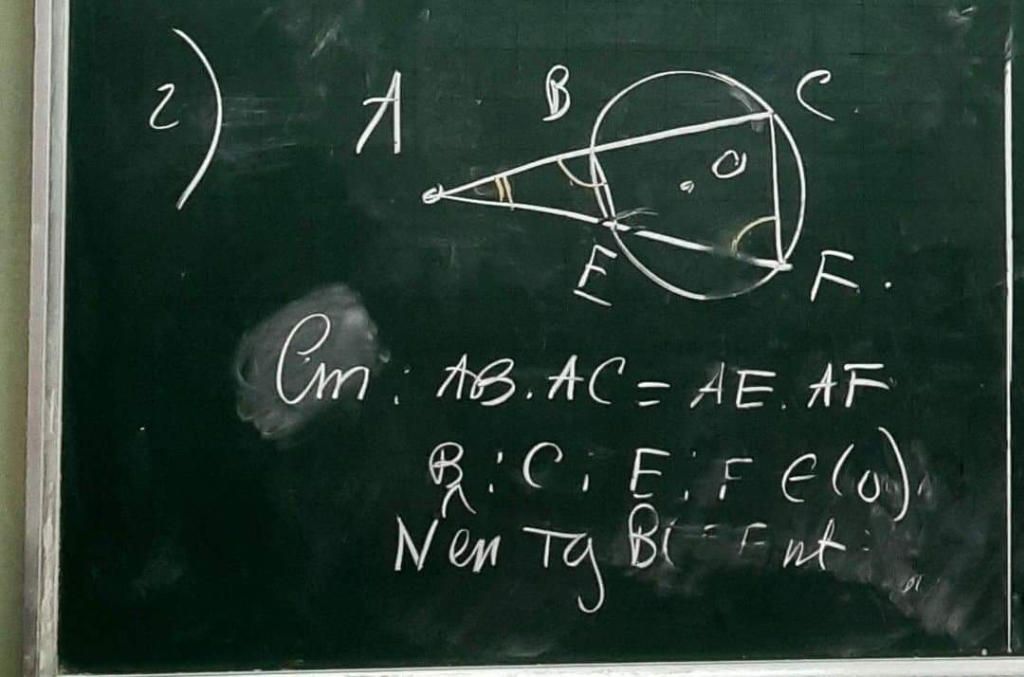 2)
A B C
O
E F.
Cm: AB.AC = AE.AF
B; C; E; F ∈ (O).
Nên Tg nt